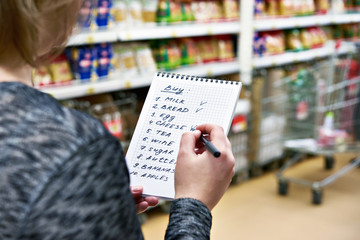 Buy:
1. MILK ✓
2. BREAD ✓
3. EGG
4. CHEESE
5. TEA
6. WINE
7. SUGAR
8.
9. BANANAS
10. APPLES